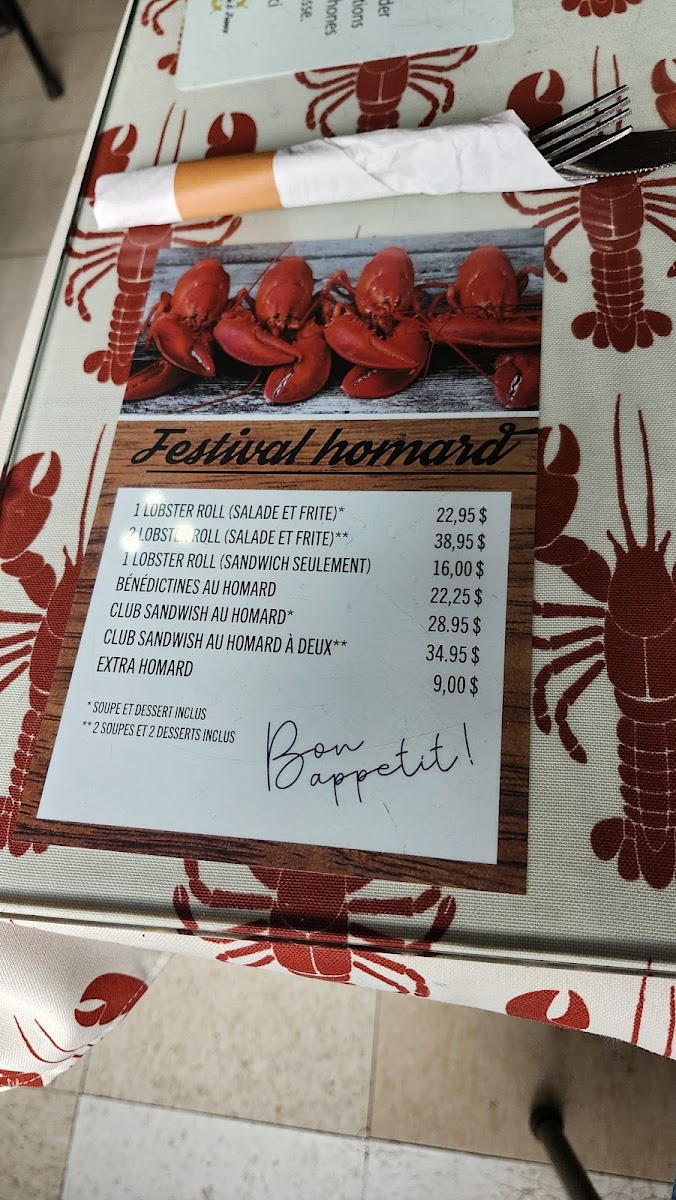 der
tions
phones
sse.
ci
Festival homard
1 LOBSTER ROLL (SALADE ET FRITE)* 22,95 $
2 LOBSTER ROLL (SALADE ET FRITE)** 38,95 $
1 LOBSTER ROLL (SANDWICH SEULEMENT) 16,00 $
BÉNÉDICTINES AU HOMARD 22,25 $
CLUB SANDWISH AU HOMARD* 28.95 $
CLUB SANDWISH AU HOMARD À DEUX** 34.95 $
EXTRA HOMARD 9,00 $
* SOUPE ET DESSERT INCLUS
** 2 SOUPES ET 2 DESSERTS INCLUS
Bon
appetit!